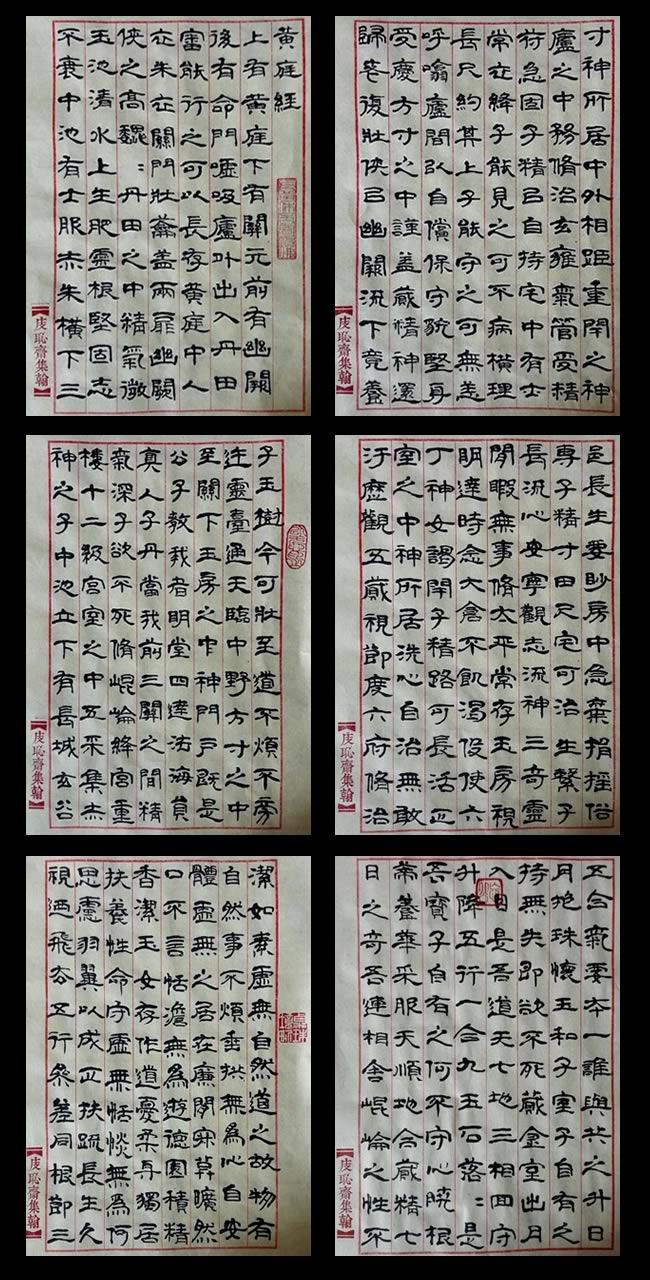 黄庭經
上有黄庭下有關元前有幽闕
後有命門噓吸廬外出入丹田
審能行之可以長存黄庭中人
衣朱衣關門壯蘥蓋兩扉幽闕
俠之高巍:丹田之中精氣微
玉池清水上生肥靈根堅固志
不衰中池有士服赤朱橫下三
恥齋集翰
寸神所居中外相距重閉之神
廬之中務脩治玄雍氣管受精
符急固子精以自持宅中有士
常衣絳子能見之可不病橫理
長尺約其上子能守之可無恙
呼噏廬間以自償保守貌堅身
受慶方寸之中謹蓋藏精神還
歸老復壯俠以幽闕流下竟養
恥齋集翰
子玉樹令可壯至道不煩不旁
迕靈臺通天臨中野方寸之中
至關下玉房之中神門戶既是
公子教我者明堂四達法海員
真人子丹當我前三關之間精
氣深子欲不死脩崐崘絳宮重
樓十二級宮室之中五采集赤
神之子中池立下有長城玄谷
恥齋集翰
邑長生要眇房中急棄捐搖俗
專子精寸田尺宅可治生繫子
長流心安寧觀志流神三奇靈
閒暇無事脩太平常存玉房視
明達時念大倉不飢渴役使六
丁神女謁閉子精路可長活正
室之中神所居洗心自治無敢
汙歷觀五藏視節度六府脩治
恥齋集翰
潔如素虛無自然道之故物有
自然事不煩垂拱無為心自安
體虛無之居在廉間寂莫曠然
口不言恬澹無為遊德園積精
香潔玉女存作道憂柔身獨居
扶養性命守虛無恬惔無為何
思慮羽翼以成正扶疏長生久
視乃飛去五行參差同根節三
恥齋集翰
五合氣要本一誰與共之升日
月抱珠懷玉和子室子自有之
持無失即欲不死藏金室出月
入日是吾道天七地三相回守
升降五行一合九玉石落:是
吾寶子自有之何不守心曉根
蒂養華采服天順地合藏精七
日之奇吾連相舍崐崘之性不
恥齋集翰